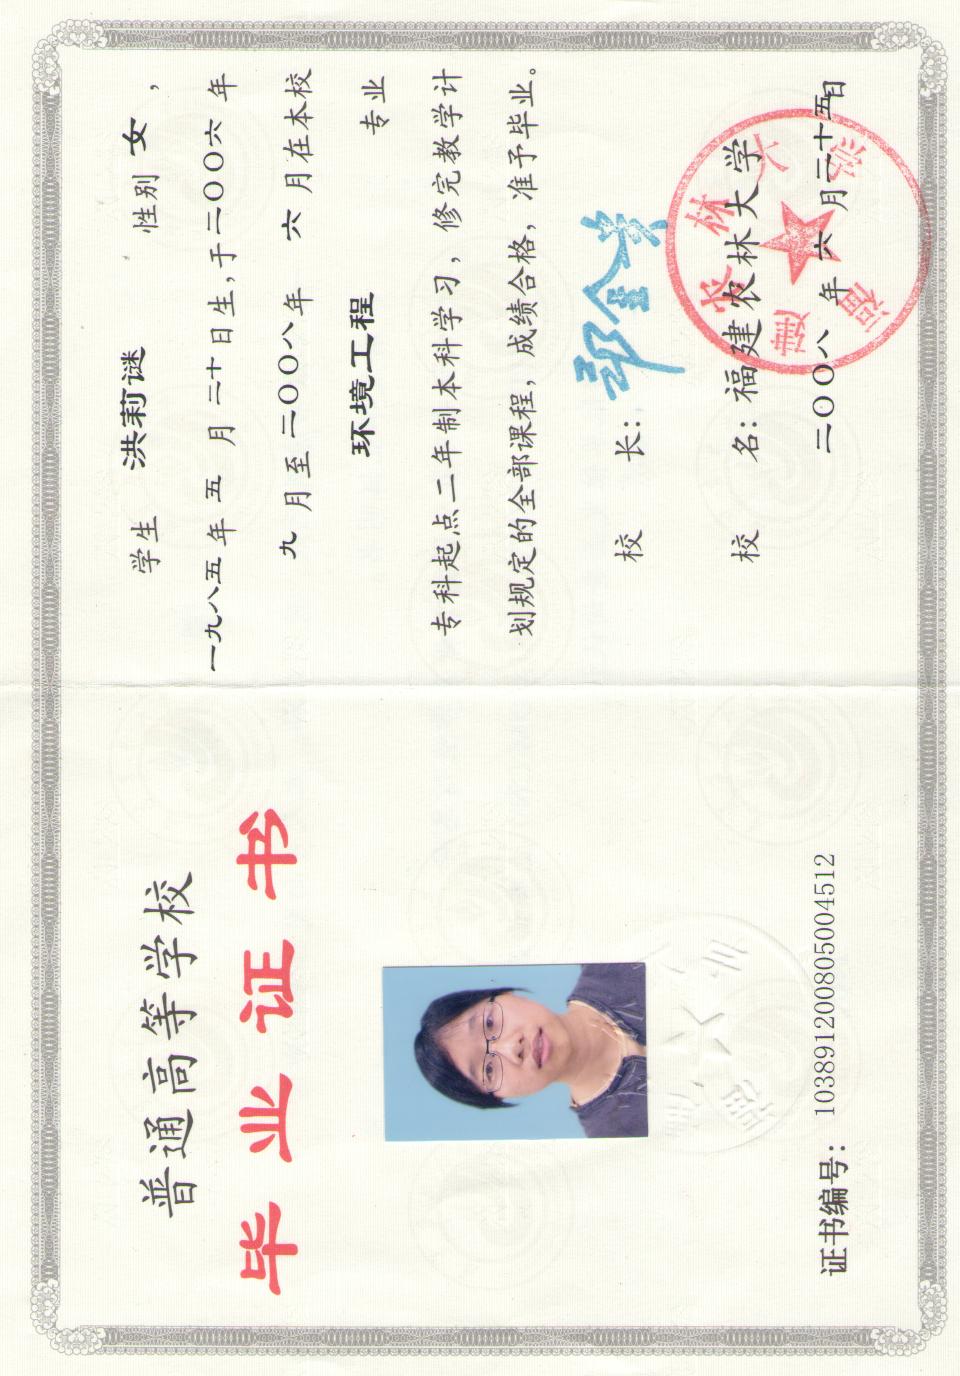 普通高等学校
毕业证书
证书编号：103891200805004512
学生 洪莉谜 性别 女，
一九八五年 五 月 二十 日生，于二〇〇六 年
九 月至 二〇〇八 年 六 月在本校
环境工程 专业
专科起点二年制本科学习，修完教学计
划规定的全部课程，成绩合格，准予毕业。
校 长：
校 名：福建农林大学
二〇〇八 年 六 月 二十五 日
福建农林大学